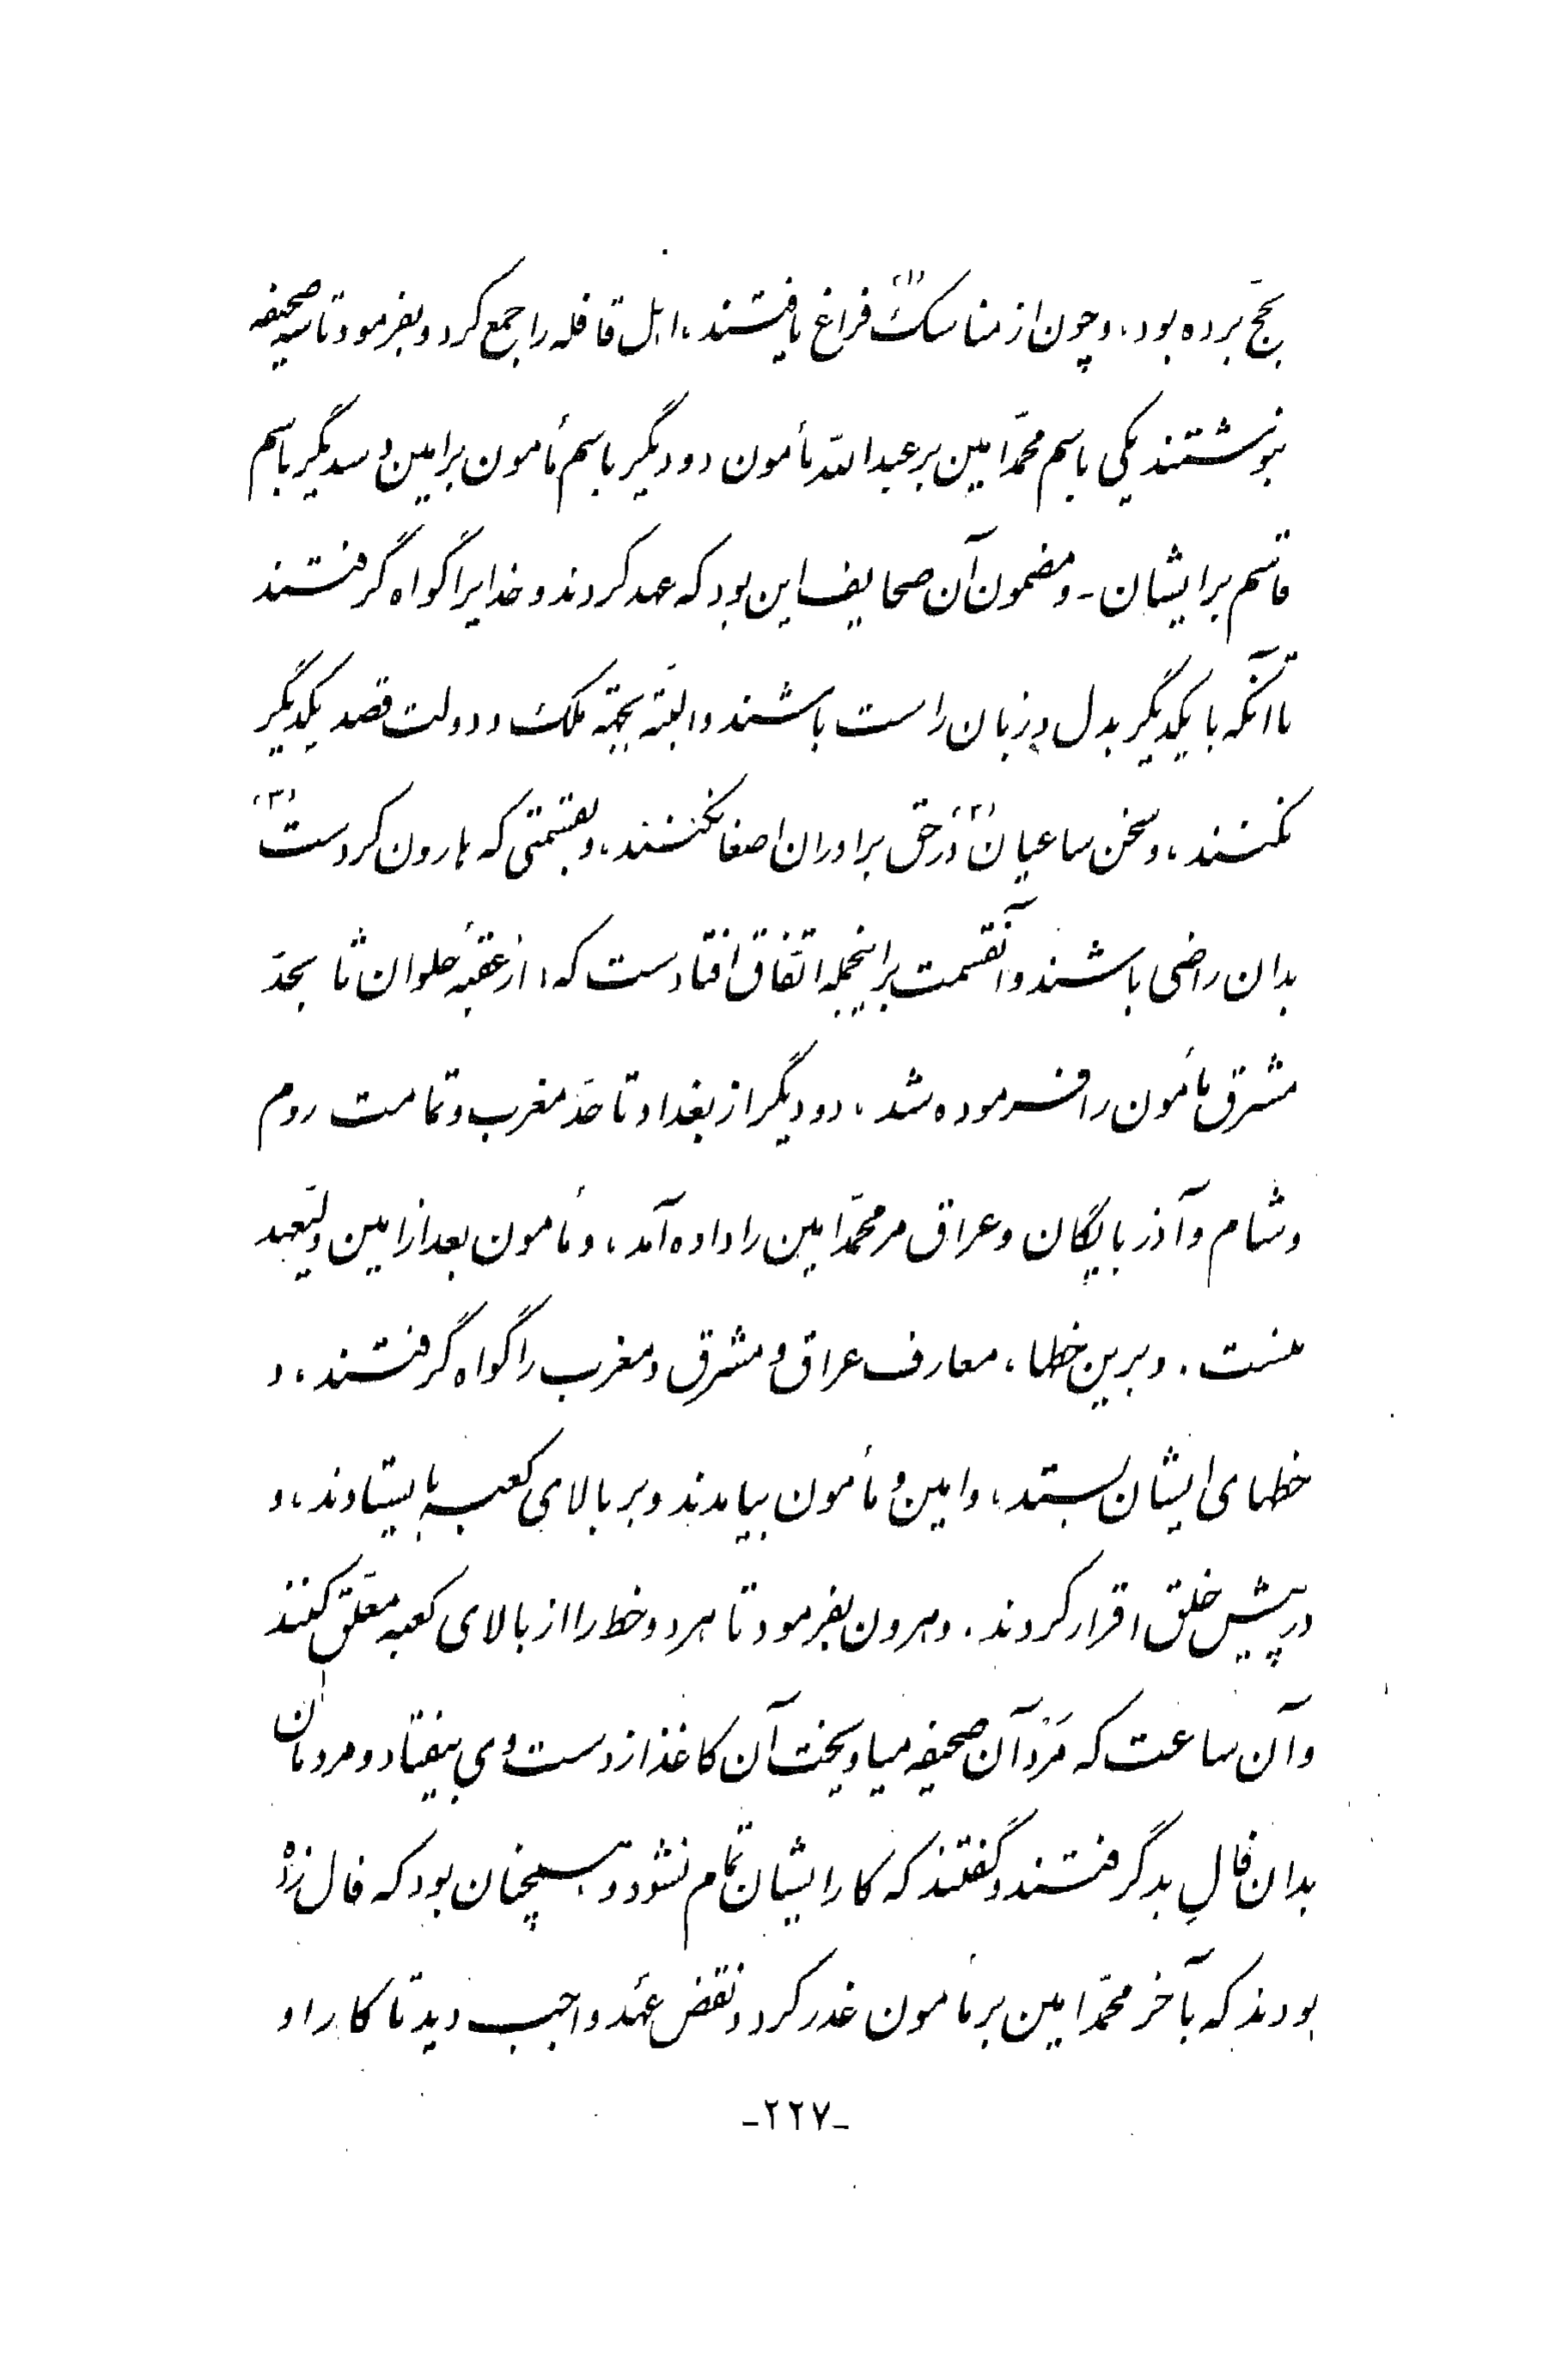 بحَجّ برده بود، وچون از مناسک(۱) فراغ یافتند، اهل قافله را جمع کرد و بفرمود تا سه صحیفه
بنوشتند یکی باسم محمّد امین بر عبداللّه مأمون دودیگر باسم مأمون بر امین و سدیگر باسم
قاسم بر ایشان - و مضمون آن صحایف این بود که عهد کردند و خدایرا گواه گرفتند
تا آنکه با یکدیگر بدل و زبان راست باشند و البتّه بجهة ملک و دولت قصد یکدیگر
نکنند، و سخن ساعیان(۲) در حق برادران اصغا نکنند، و بقسمتی که هارون کردست(۳)
بدان راضی باشند و آنقسمت برینجمله اتّفاق افتادست که، از عقبهٔ حلوان تا بحدّ
مشرق مأمون را فرموده شد، دودیگر از بغداد تا حدّ مغرب و تمامت روم
و شام و آذربایگان و عراق مر محمّد امین را داده آمد، و مأمون بعد از امین ولیّعهد
منست. و برین خطها، معارف عراق و مشرق و مغرب را گواه گرفتند، و
خطهای ایشان بستد، و امین و مأمون بیامدند و بر بالای کعبه بایستادند، و
در پیش خلق اقرار کردند. و هرون بفرمود تا هر دو خط را از بالای کعبه معلّق کنند
و آن ساعت که مَرْد آن صحیفه میاویخت آن کاغذ از دست وی بیفتاد و مردمان
بدان فالِ بد گرفتند و گفتند که کار ایشان تمام نشود و همچنان بود که فال زدْه
بودند که بآخر محمّد امین بر مأمون غدر کرد و نقض عهد واجب دید تا کار او
-۲۲۷-